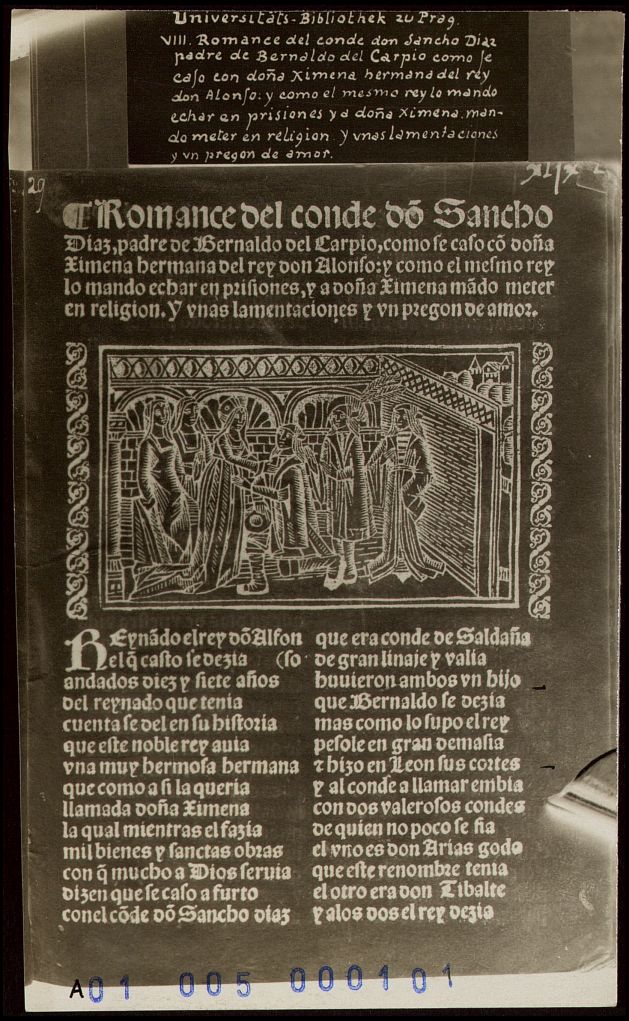 Universitäts-Bibliothek zu Prag.
VIII. Romance del conde don Sancho Diaz
padre de Bernaldo del Carpio como se
caso con doña Ximena hermana del rey
don Alonso: y como el mesmo rey lo mando
echar en prisiones y a doña Ximena man-
do meter en religion y vnas lamentaciones
y vn pregon de amor.
29
¶ Romance del conde dõ Sancho
Diaz, padre de Bernaldo del Carpio, como se caso cõ doña
Ximena hermana del rey don Alonso: y como el mesmo rey
lo mando echar en prisiones, y a doña Ximena mãdo meter
en religion. Y vnas lamentaciones y vn pregon de amor.
REynãdo el rey dõ Alfon
el q̃ casto se dezia (so
andados diez y siete años
del reynado que tenia
cuenta se del en su historia
que este noble rey auia
vna muy hermosa hermana
que como a si la queria
llamada doña Ximena
la qual mientras el fazia
mil bienes y sanctas obras
con q̃ mucho a Dios seruia
dizen que se caso a furto
con el cõde dõ Sancho diaz
que era conde de Saldaña
de gran linaje y valia
huuieron ambos vn hijo
que Bernaldo se dezia
mas como lo supo el rey
pesole en gran demasia
⁊ hizo en Leon sus cortes
y al conde a llamar embia
con dos valerosos condes
de quien no poco se fia
el vno es don Arias godo
que este renombre tenia
el otro era don Tibalte
y a los dos el rey dezia
A01 005 0001 01